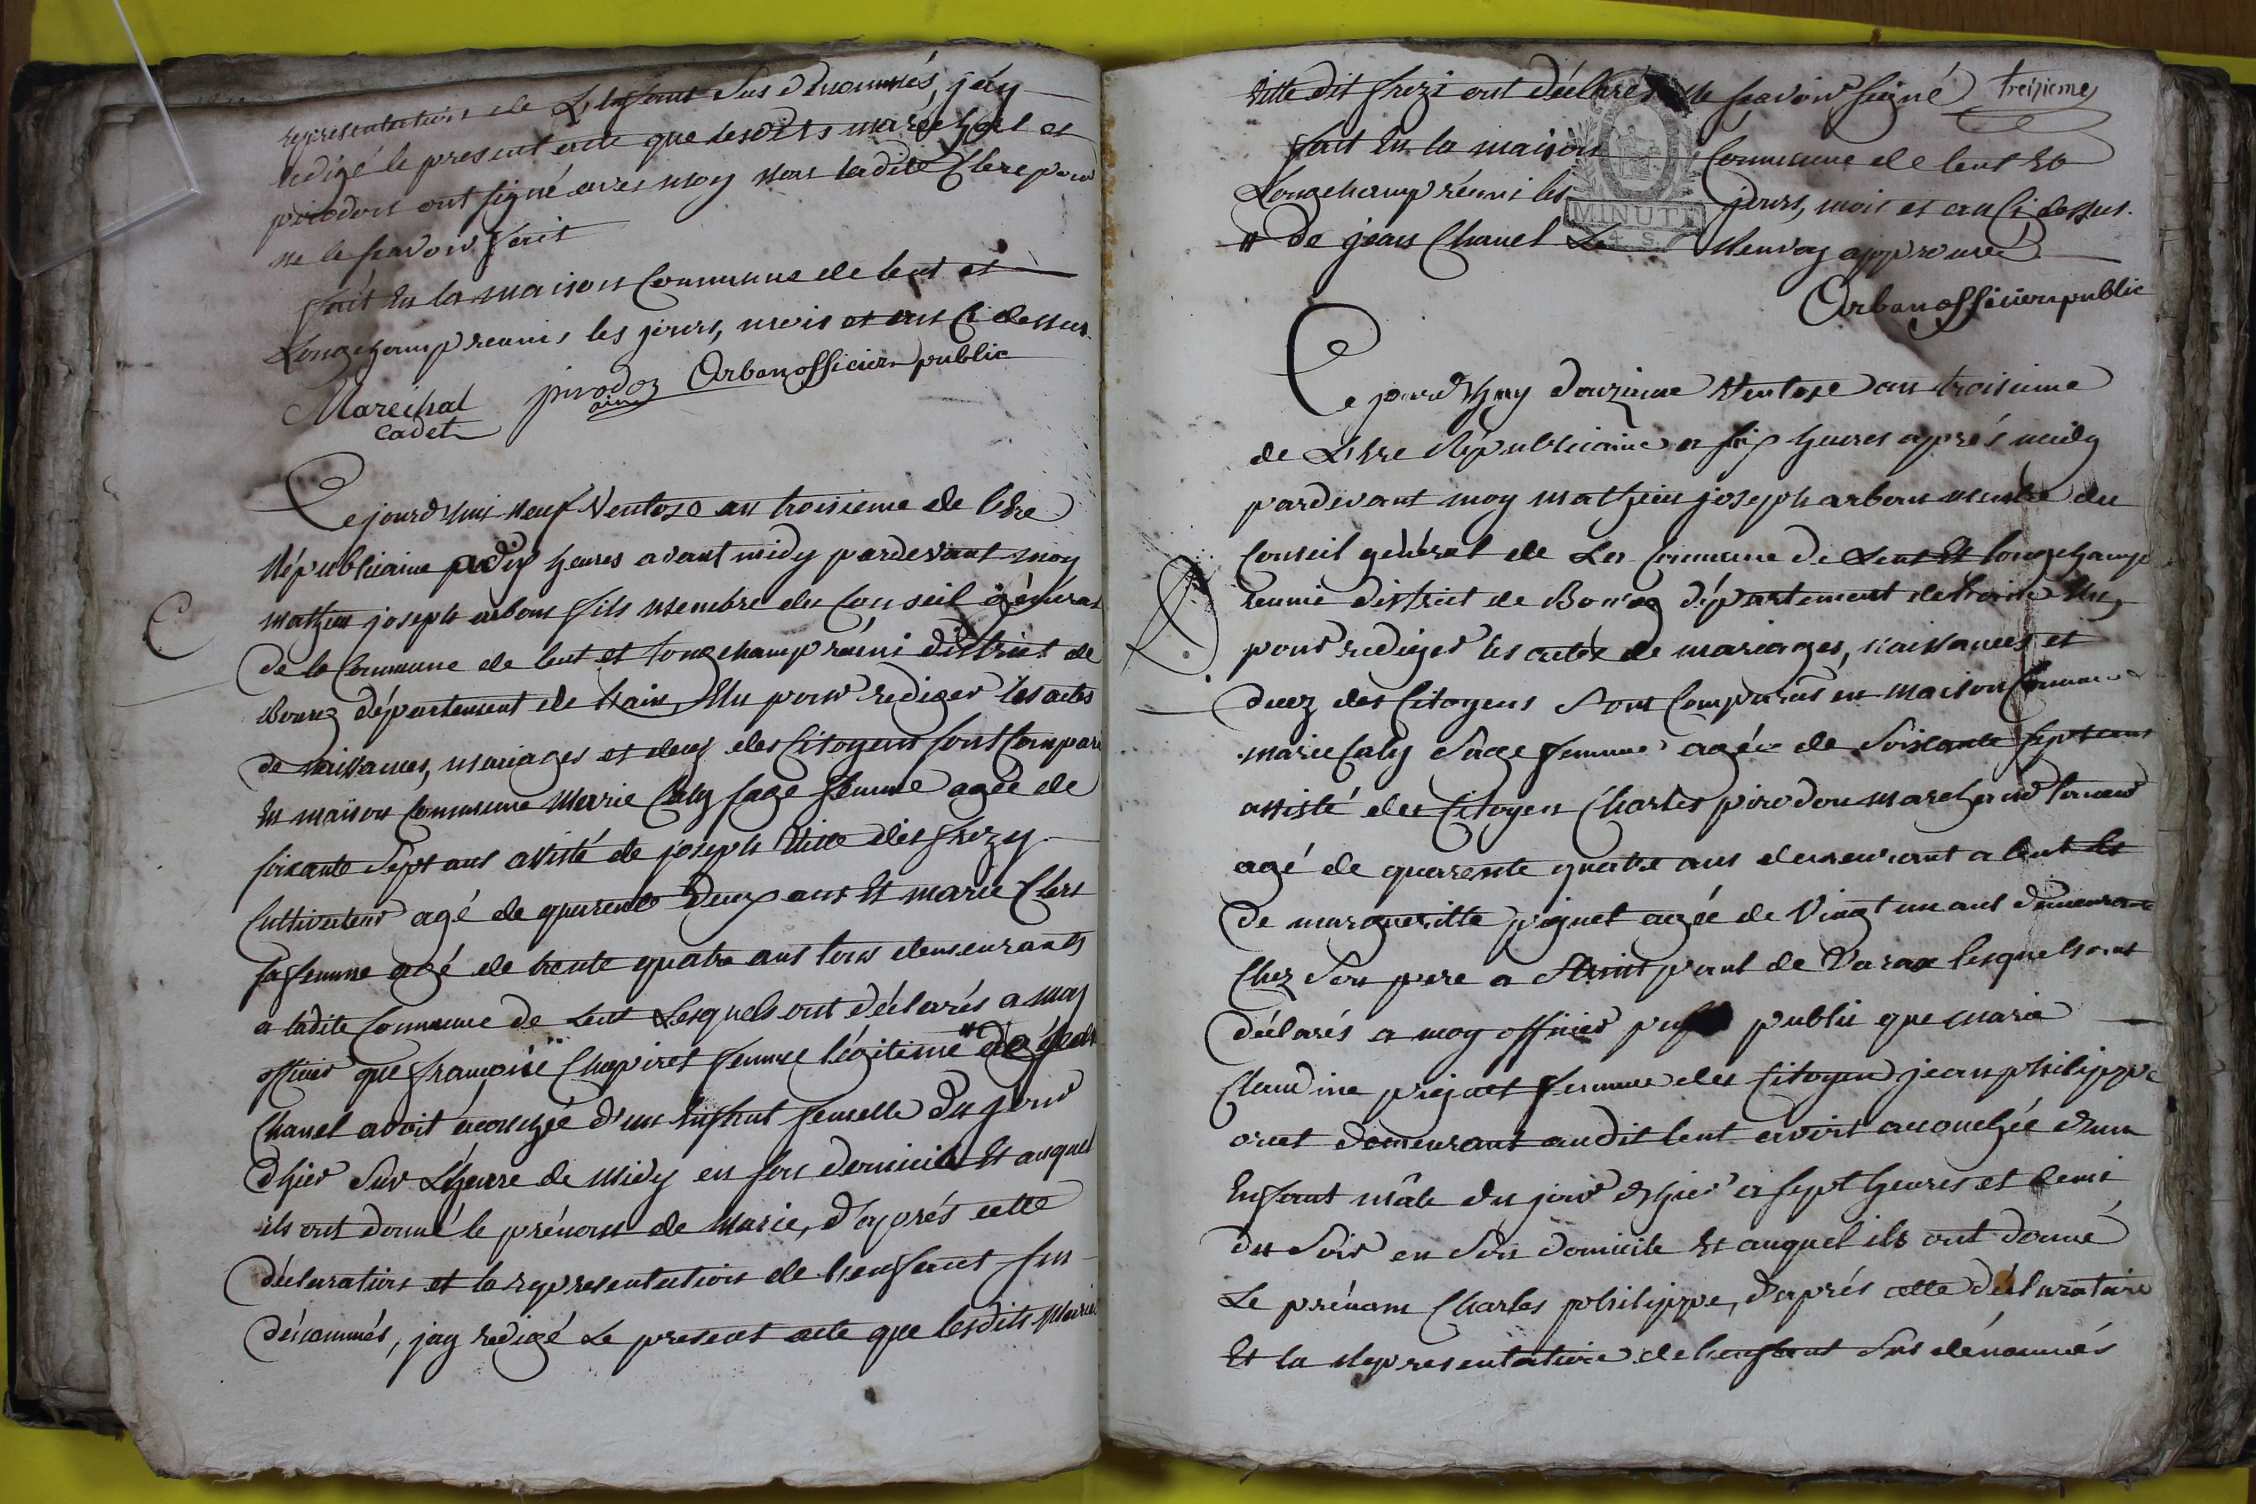 representation de L'Enfant sus dénommés, j'ay
redigé le present acte que lesdits maréchal et
pirodon ont signé avec moy non ladite Clere pour
ne le scavoir faire
fait En la maison Commune de lent et
Longchamp reunis les jours, mois et ans Ci dessus.
Maréchal cadet pirodon ainé Arban officier public
Ce jourd'huy neuf Ventose an troisieme de l'Ere
Républicaine a dix heures avant midy pardevant moy
mathieu joseph arban fils membre du Conseil général
de la Commune de lent et longchamp réuni district de
Bourg département de L'ain, Elu pour rediger les actes
de naissances, mariages et decez des Citoyens sont Compar
En maison Commune Marie Caly sage femme agée de
soixante Sept ans assisté de joseph Vitte dit frezy
Cultivateur agé de quarente Deux ans Et marie Clere
sa femme agé de trente quatre ans tous demeurants
a ladite Commune de Lent Lesquels ont déclarés a moy
officier que françoise Chapiret femme légitime # de jean
Chanel avoit acouchée d'un Enfant femelle du jour
d'hier Sur L'heure de Midy en son domicile Et auquel
ils ont donné le prénom de Marie, d'après cette
déclaration et la representation de L'enfant sus
dénommés, jay redigé Le present acte que lesdits Marie
Vitte dit frezi ont déclarés ne scavoir signé
treizieme
fait En la maison Commune de lent Et
Longchamp réuni les jours, mois et an Ci dessus.
# de jean Chanel Le Renvoy approuvé
MINUTE
4 S.
Arban officier public
Ce jourd'huy douzieme Ventose an troisieme
de L'Ere Républicaine a six heures après midy
pardevant moy mathieu joseph arban membre du
Conseil général de La Commune de Lent Et longchamp
reunie district de Bourg département de L'ain Elu
pour rediger les actes de mariages, naissances et
decez des Citoyens Sont Comparus en maison Commune
marie Caly Sage femme agée de Soixante sept ans
assisté du Citoyen Charles pirodon marchand taneur
agé de quarente quatre ans demeurant a lent Et
de marguerite pignet agée de Vingt un ans demeurante
Chez Son pere a Saint paul de Varax lesquels ont
déclarés a moy officier public que marie
Claudine piejact femme du Citoyen jean philippe
oret demeurant audit lent avoir acouchée d'un
Enfant mâle du jour d'hier a sept heures et demi
du Soir en Son domicile Et auquel ils ont donné
Le prénom Charles philippe, d'après cette déclaration
Et la Representation de L'enfant Sus dénommés